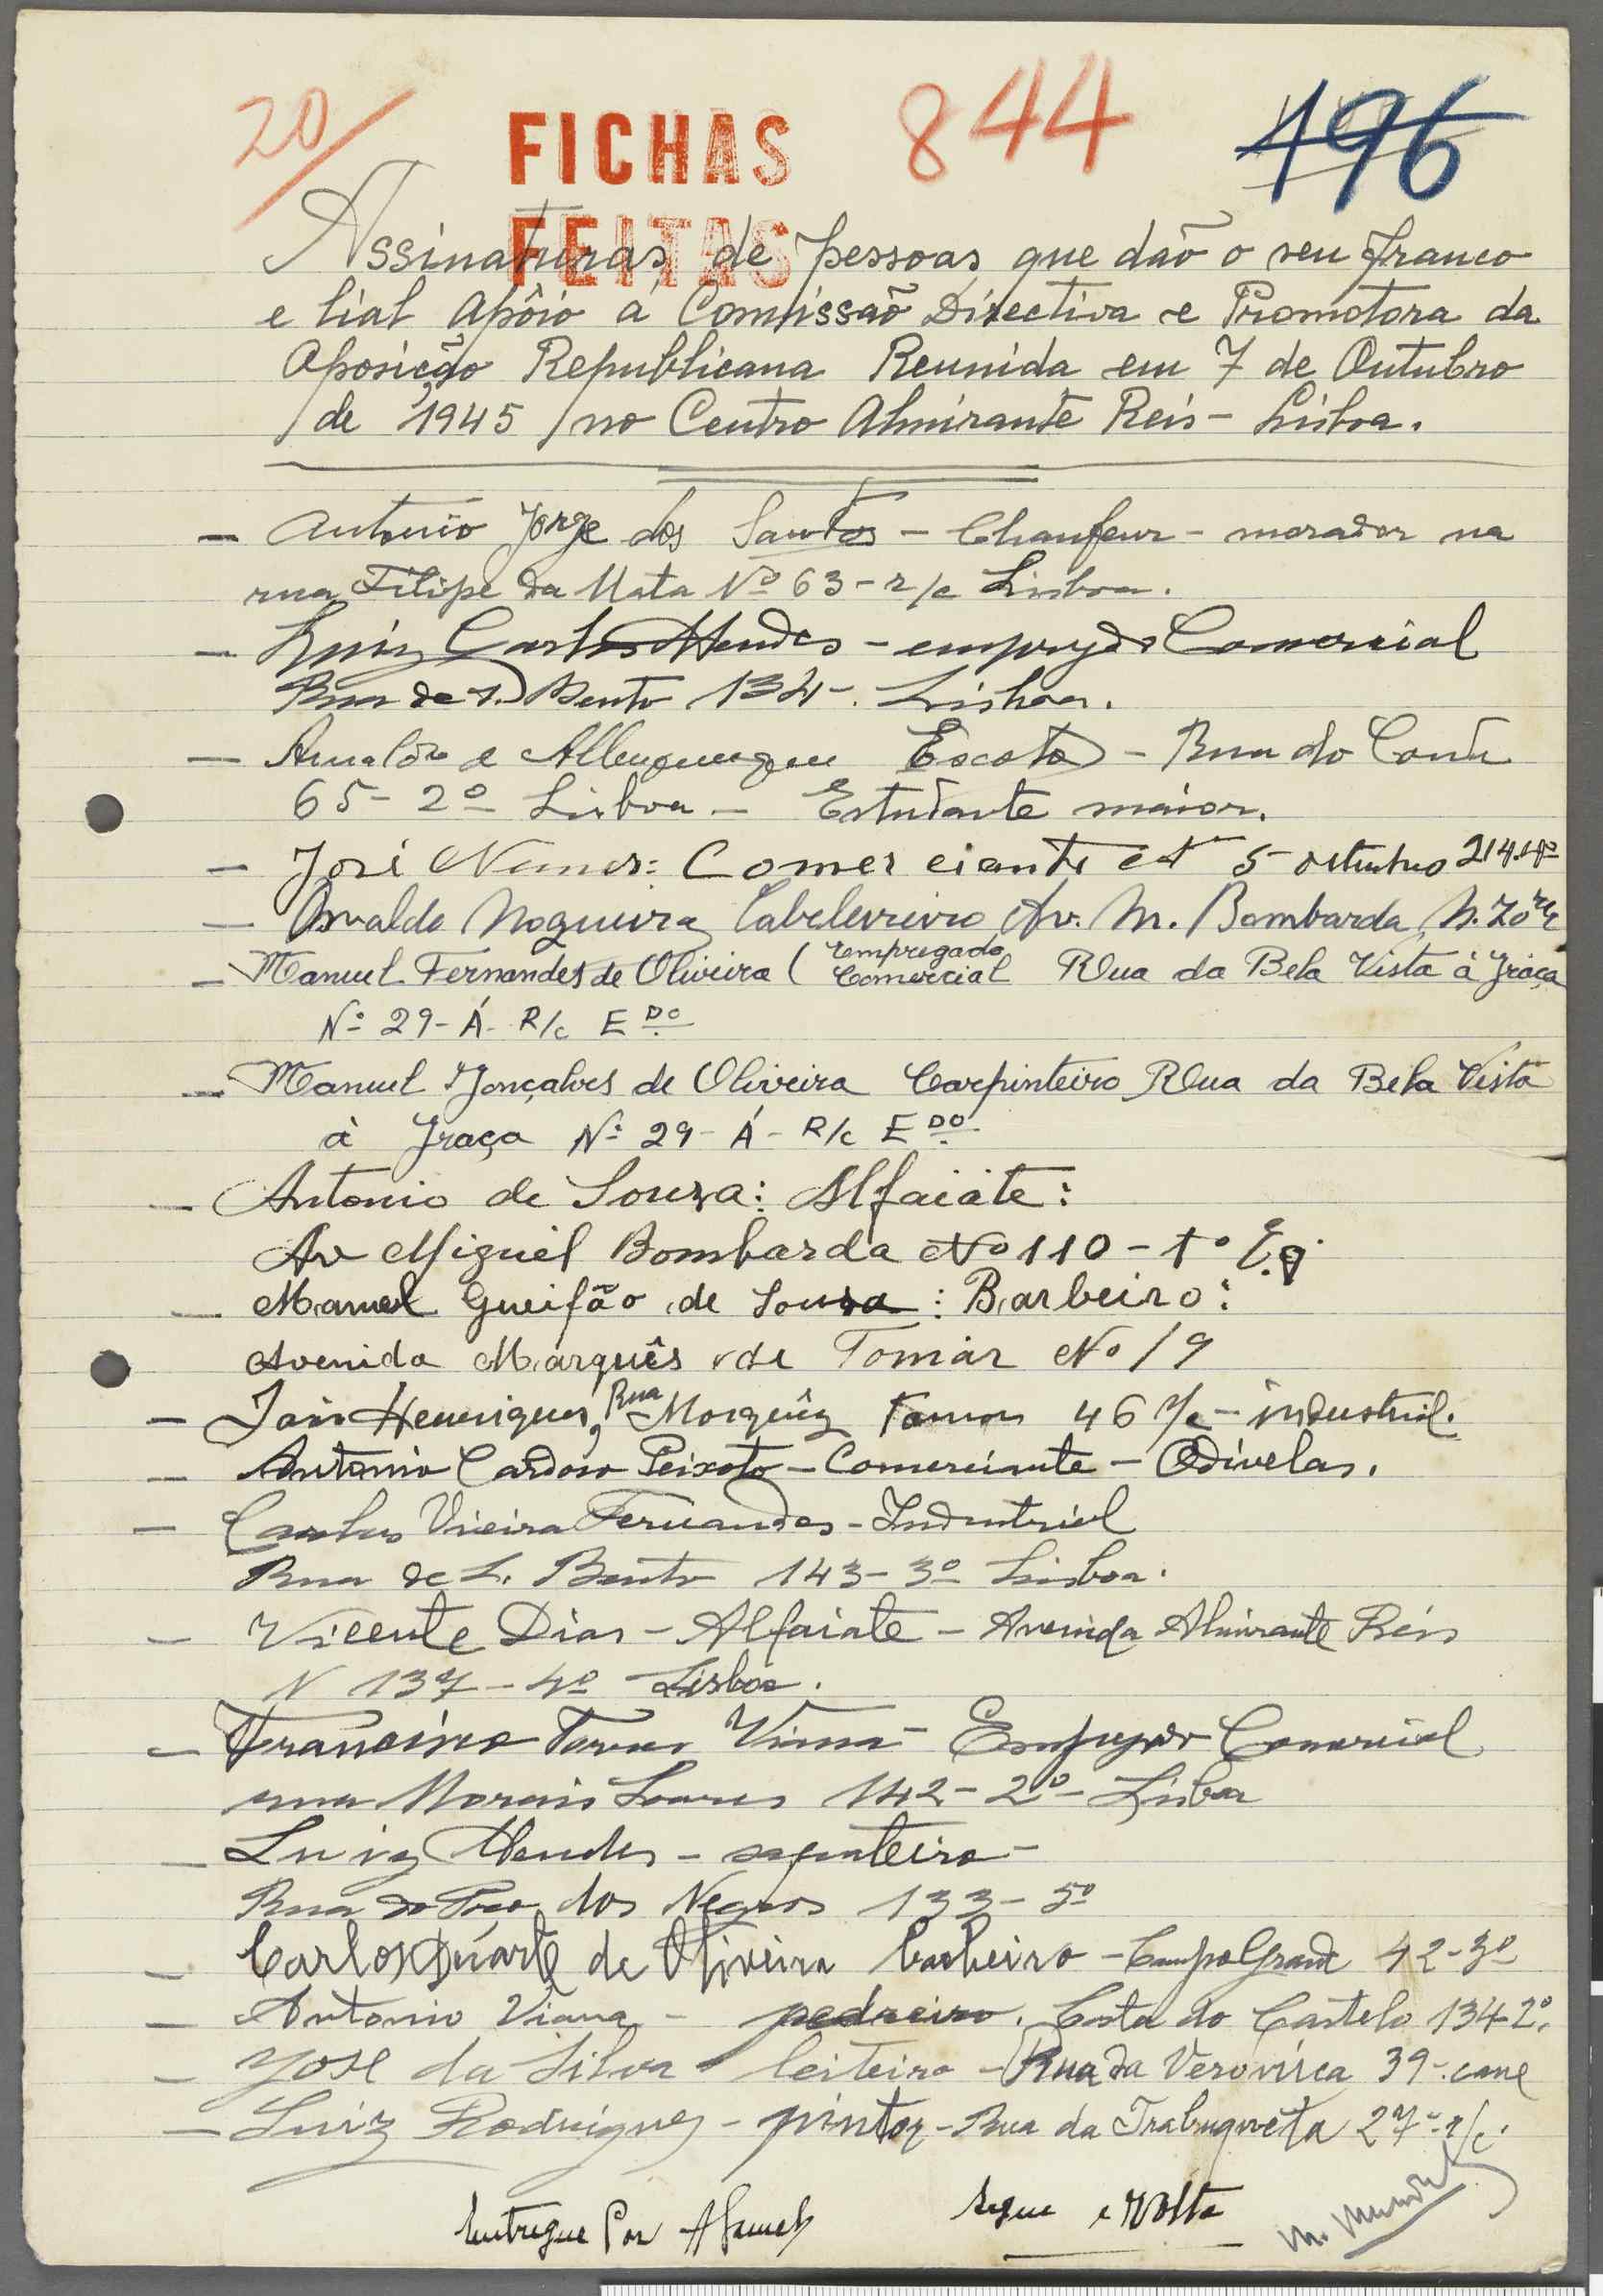 20/ FICHAS 844 496
FEITAS
Assinaturas de pessoas que dão o seu franco
e lial apôio á Comissão Directiva e Promotora da
Oposição Republicana Reunida em 7 de Outubro
de 1945 no Centro Almirante Reis - Lisboa.
- Antonio Jorge dos Santos - Chaufeur - morador na
rua Filipe da Mata Nº 63 - r/c Lisboa.
- Luiz Carlos Mendes - empregdo Comercial
Rua de S. Bento 134 -. Lisboa.
- Arnaldo e Albuquerque - Rua do Conde
65 - 2º Lisboa - Estudante maior.
- José Nunes: Comerciante 5 outubro 214
- Osvaldo Nogueira Cabeleireiro Av. M. Bombarda, N. 20
- Manuel Fernandes de Oliveira ( Empregado
Comercial Rua da Bela Vista à Graça
Nº 29 - Á - R/c E DO
- Manuel Gonçalves de Oliveira Carpinteiro Rua da Bela Vista
à Graça Nº 29 - Á - R/c E DO
- Antonio de Souza: Alfaiate:
Av Miguel Bombarda Nº 110 - 1º Eq.
- Manuel Gueifão de Sousa: Barbeiro:
Avenida Marquês de Tomár Nº 19
- João Henriques, Rua Marquêz Tomar 46 r/c - industrial.
- Antonio Cardoso Peixoto - Comerciante - Odivelas.
- Carlos Vieira Fernandes - Industrial
Rua de S. Bento 143 - 3º Lisboa.
- Vicente Dias - Alfaiate - Avenida Almirante Reis
N 137 - 4º Lisboa.
- Francisco Viana - Empregdo Comercial
rua Morais Soares 142 - 2º - Lisboa
- Luiz Mendes - sapateiro -
Rua do Poço dos Negros 133 - 5º
- Carlos Duarte de Oliveira barbeiro - Campo Grande 42 - 3º
- Antonio Viana - pedreiro. Costa do Castelo 134 - 2º.
- José da Silva leiteiro - Rua da Verónica 39 - cave
- Luiz Rodrigues - pintor - Rua da Trabuqueta 27 - r/c.
Entregue Por segue e Volta